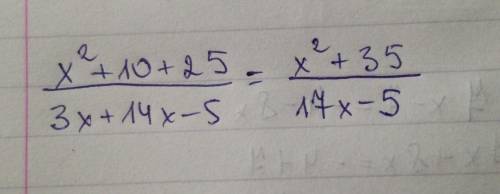 x²+10+25 / 3x+14x-5 = x²+35 / 17x-5